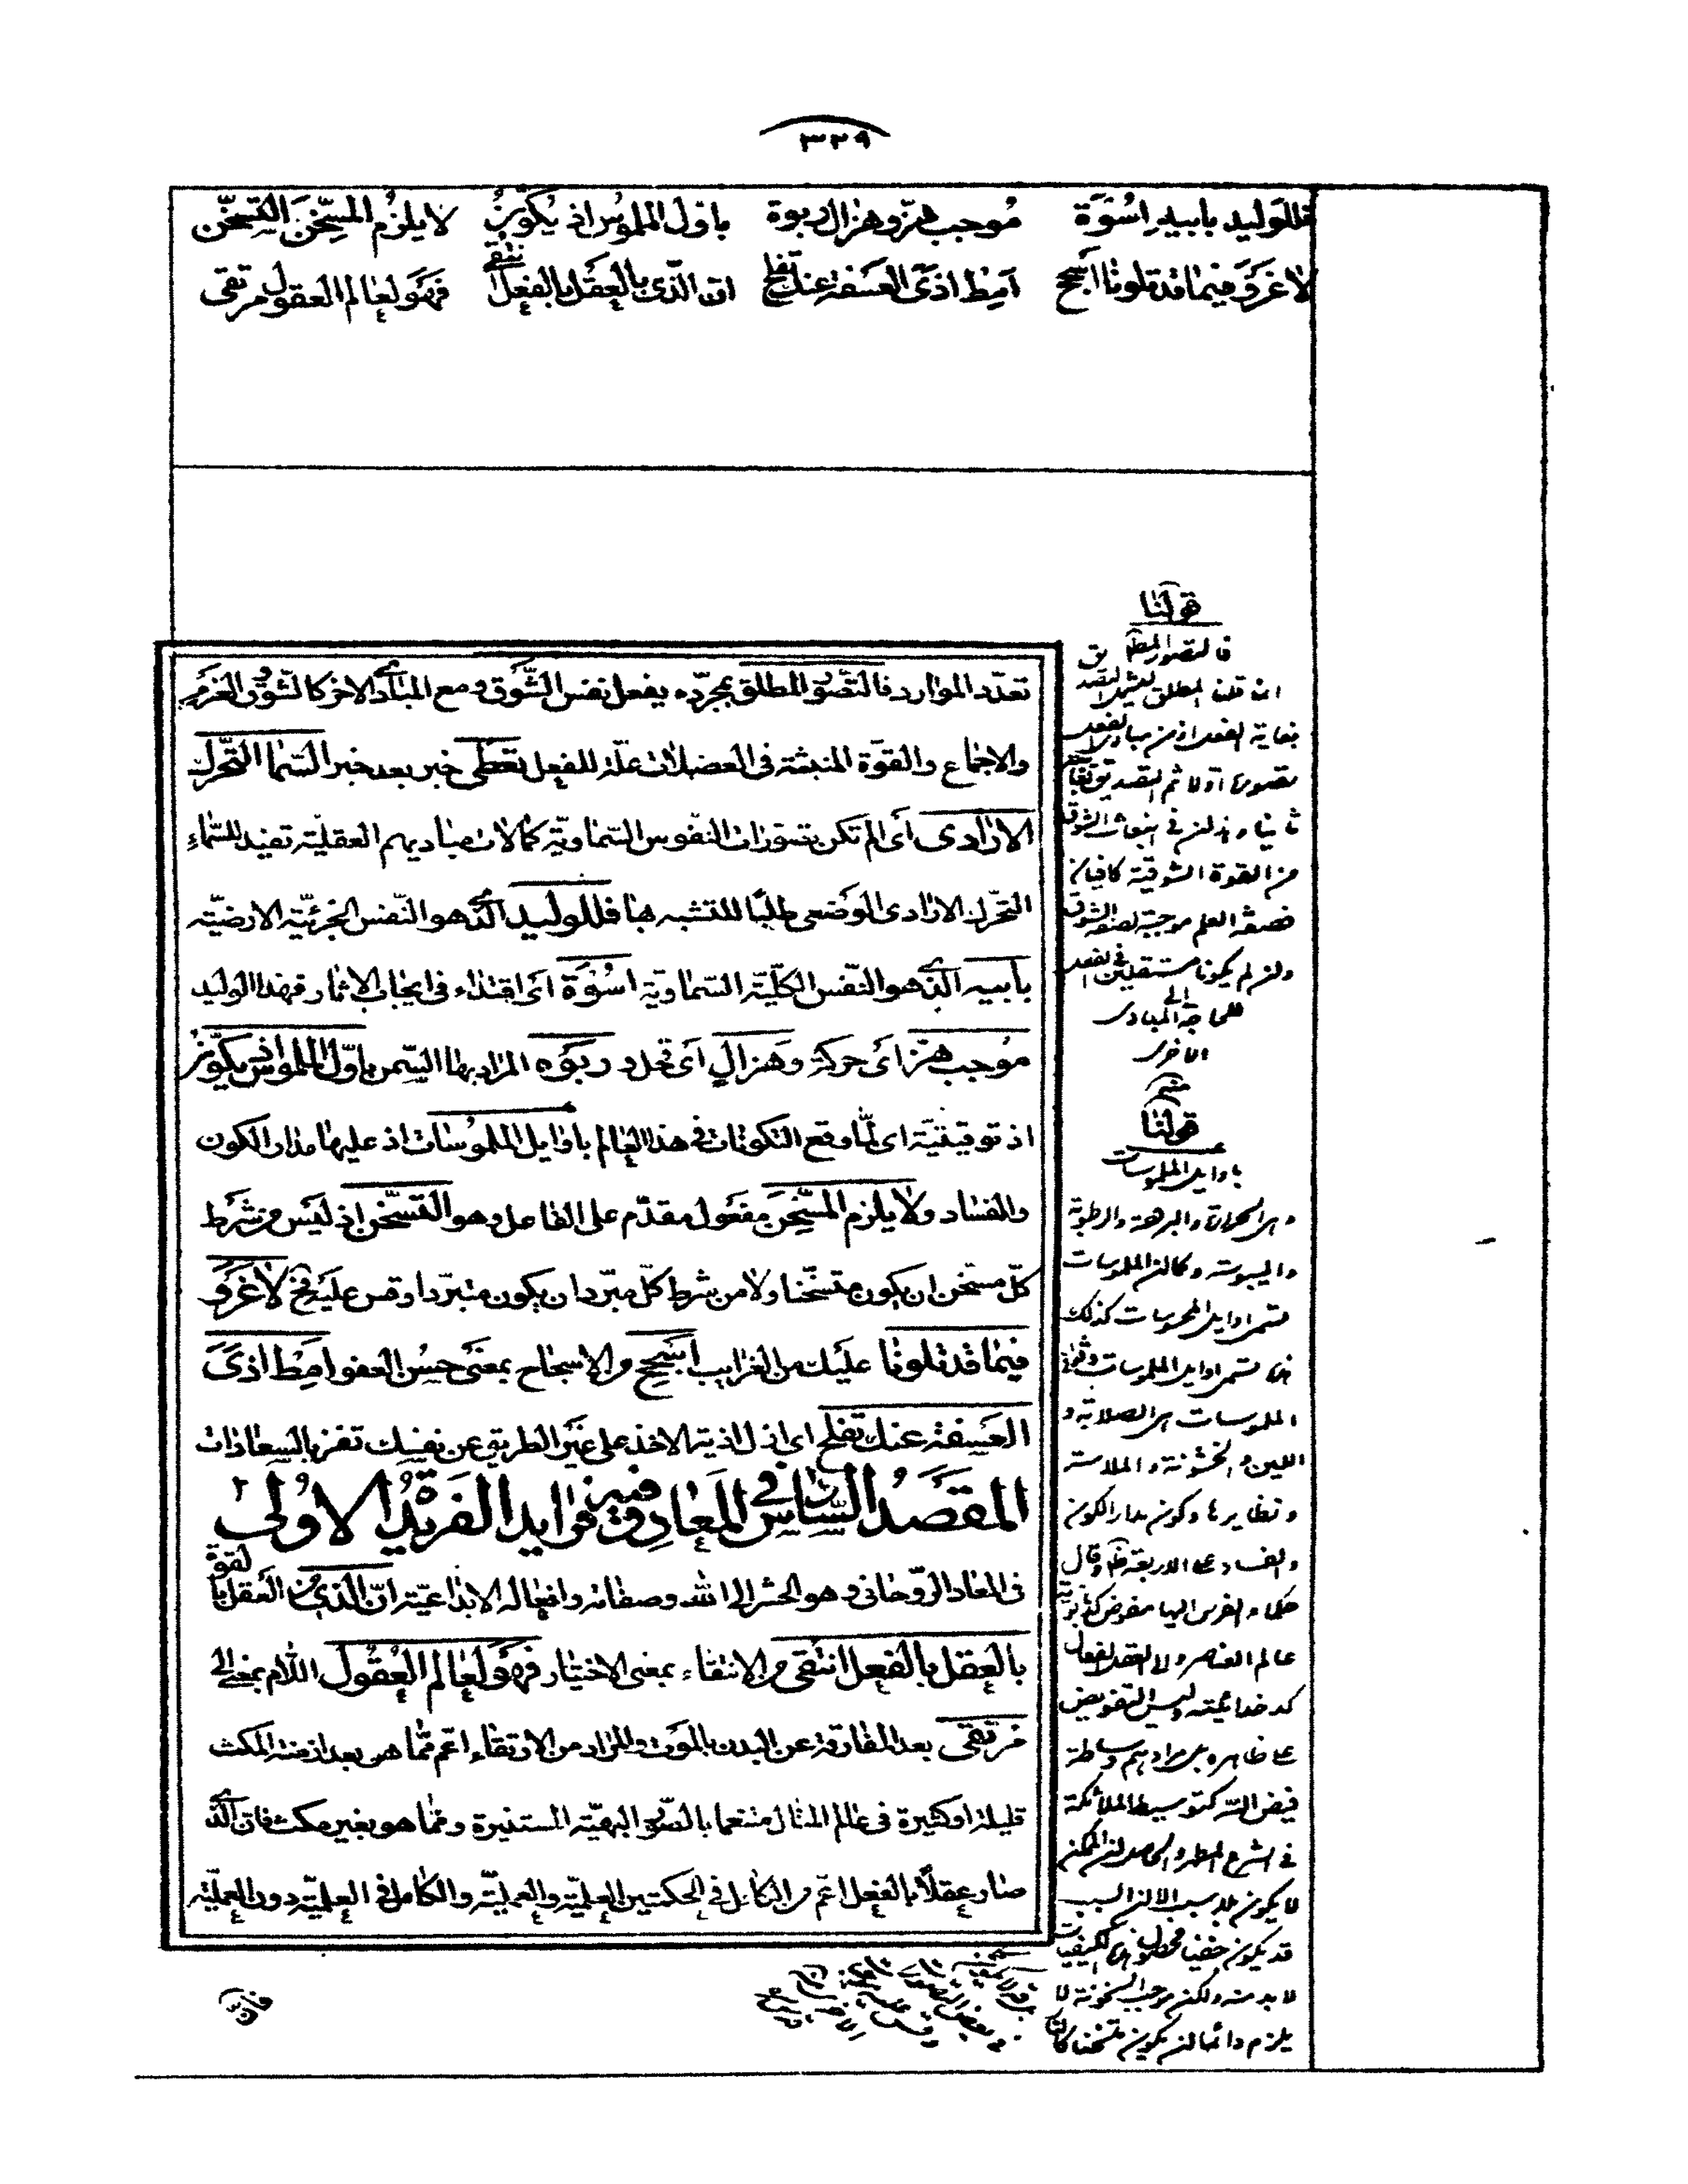 ٣٢٩
فللوليد بابيه اسوة موجب هز وهزال ربوة باول الملموس اذ يكون لا يلزم المسخن التسخن
لا غرو فيما قد تلونا اسجح امط اذى العسفة عنك تفلح ان الذى بالعقل بالفعل انتقى فهو لعالم العقول مرتقى
تعدد الموارد فالتصور المطلق بمجرده يفعل نفس الشوق ومع المبادى الاخر كالشوق والعزم
والاجماع والقوة المنبثة فى العضلات علة للفعل تعطى خبر بعد خبر السما التحرك
الارادى اى لم تكن تصورات النفوس السماوية كمالات مباديهم العقلية تفيد للسماء
التحرك الارادى الوضعى طلبا للتشبه بها فللوليد الذى هو النفس الجزئية الارضية
بابيه الذى هو النفس الكلية السماوية اسوة اى اقتداء فى ايجاب الاثار فهذا الوليد
موجب هز اى حركة وهزال اى تحدد ربوه المراد بها السمن باول الملموس اذ يكون
اذ توقيتية اى لما وقع التكونات فى هذا العالم باوايل الملموسات اذ عليها مدار الكون
والفساد ولا يلزم المسخن مفعول مقدم على الفاعل وهو التسخن اذ ليس من شرط
كل مسخن ان يكون متسخنا ولا من شرط كل مبرد ان يكون متبردا وقس عليه فح لا غرو
فيما قد تلونا عليك من الغرايب اسجح من الاسجاح بمعنى حسن العفو امط اذى
العسفة عنك تفلح اى ازل اذية الاخذ على غير الطريق عن نفسك تفز بالسعادات
المقصد السادس فى المعاد وفيه فرايد الفريدة الاولى
فى المعاد الروحانى وهو الحشر الى الله وصفاته وافعاله الابداعية ان الذى من العقل بالقوة
بالعقل بالفعل انتقى من الانتقاء بمعنى الاختيار فهو لعالم العقول اللام بمعنى الى
مرتقى بعد المفارقة عن البدن بالموت والمراد من الارتقاء اعم مما هو بعد ازمنة المكث
قليلة او كثيرة فى عالم المثال متنعما بالصور البهية المستنيرة ومما هو بغير مكث فان الذى
صار عقلا بالفعل اعم من الكامل فى الحكمتين العلمية والعملية والكامل فى العلمية دون العملية
فان
قولنا
فالتصور المطلق
ان قلت المطلق يشمل التصديق
بغاية الفعل اذ من مبادى الفعل
تصورها اولا ثم التصديق بغايتها
ثانيا وهذان فى انبعاث الشوق
من القوة الشوقية كافيان
فصفة العلم موجبة لصفة الشوق
وان لم يكونا مستقلين فى الفعل
للحاجة الى المبادى
الاخرى
منه
قولنا
باوايل الملموسات
هى الحرارة والبرودة والرطوبة
واليبوسة وكما ان الملموسات
تسمى اوايل المحسوسات كذلك
هذه تسمى اوايل الملموسات وثوانى
الملموسات هى الصلابة و
اللين والخشونة والملاسة
ونظايرها وكون مدار الكون
والفساد على الاربعة ظ وقال
حكماء الفرس اليها مفوض كدخدائية
عالم العناصر والى العقل الفعال
كدخدائيته وليس التفويض
على ظاهره بل مرادهم وساطة
فيض الله كتوسيط الملائكة
فى الشرع المطهر والحاصل ان الممكن
لا يكون بلا سبب الا ان السبب
قد يكون خفيا فحصول هذه الكيفيات
لا بد منه ولكن موجب السخونة لا
يلزم دائما ان يكون متسخنا